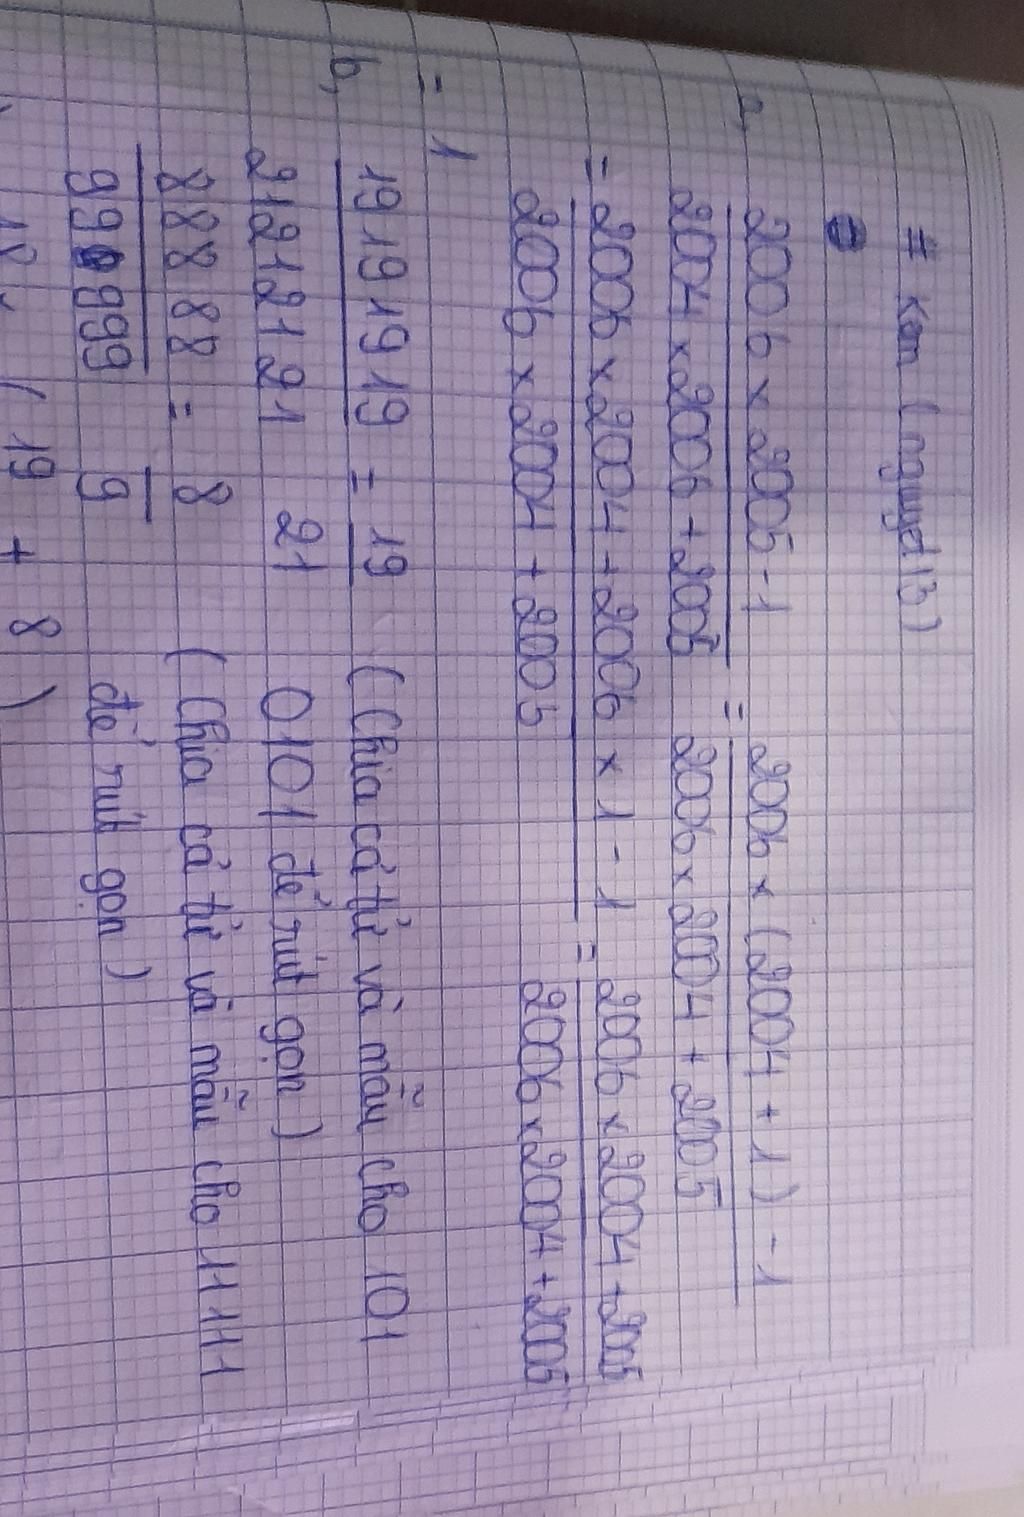 # Kem (nguyet13)
a, 2006 × 2005 - 1 / 2004 × 2006 + 2005 = 2006 × (2004 + 1) - 1 / 2006 × 2004 + 2005
= 2006 × 2004 + 2006 × 1 - 1 / 2006 × 2004 + 2005 = 2006 × 2004 + 2005 / 2006 × 2004 + 2005
= 1
b, 19191919 / 21212121 = 19 / 21 (Chia cả tử và mẫu cho 101
0101 để rút gọn)
88888 / 99999 = 8 / 9 (Chia cả tử và mẫu cho 11111
để rút gọn)
18 × (19 + 8)